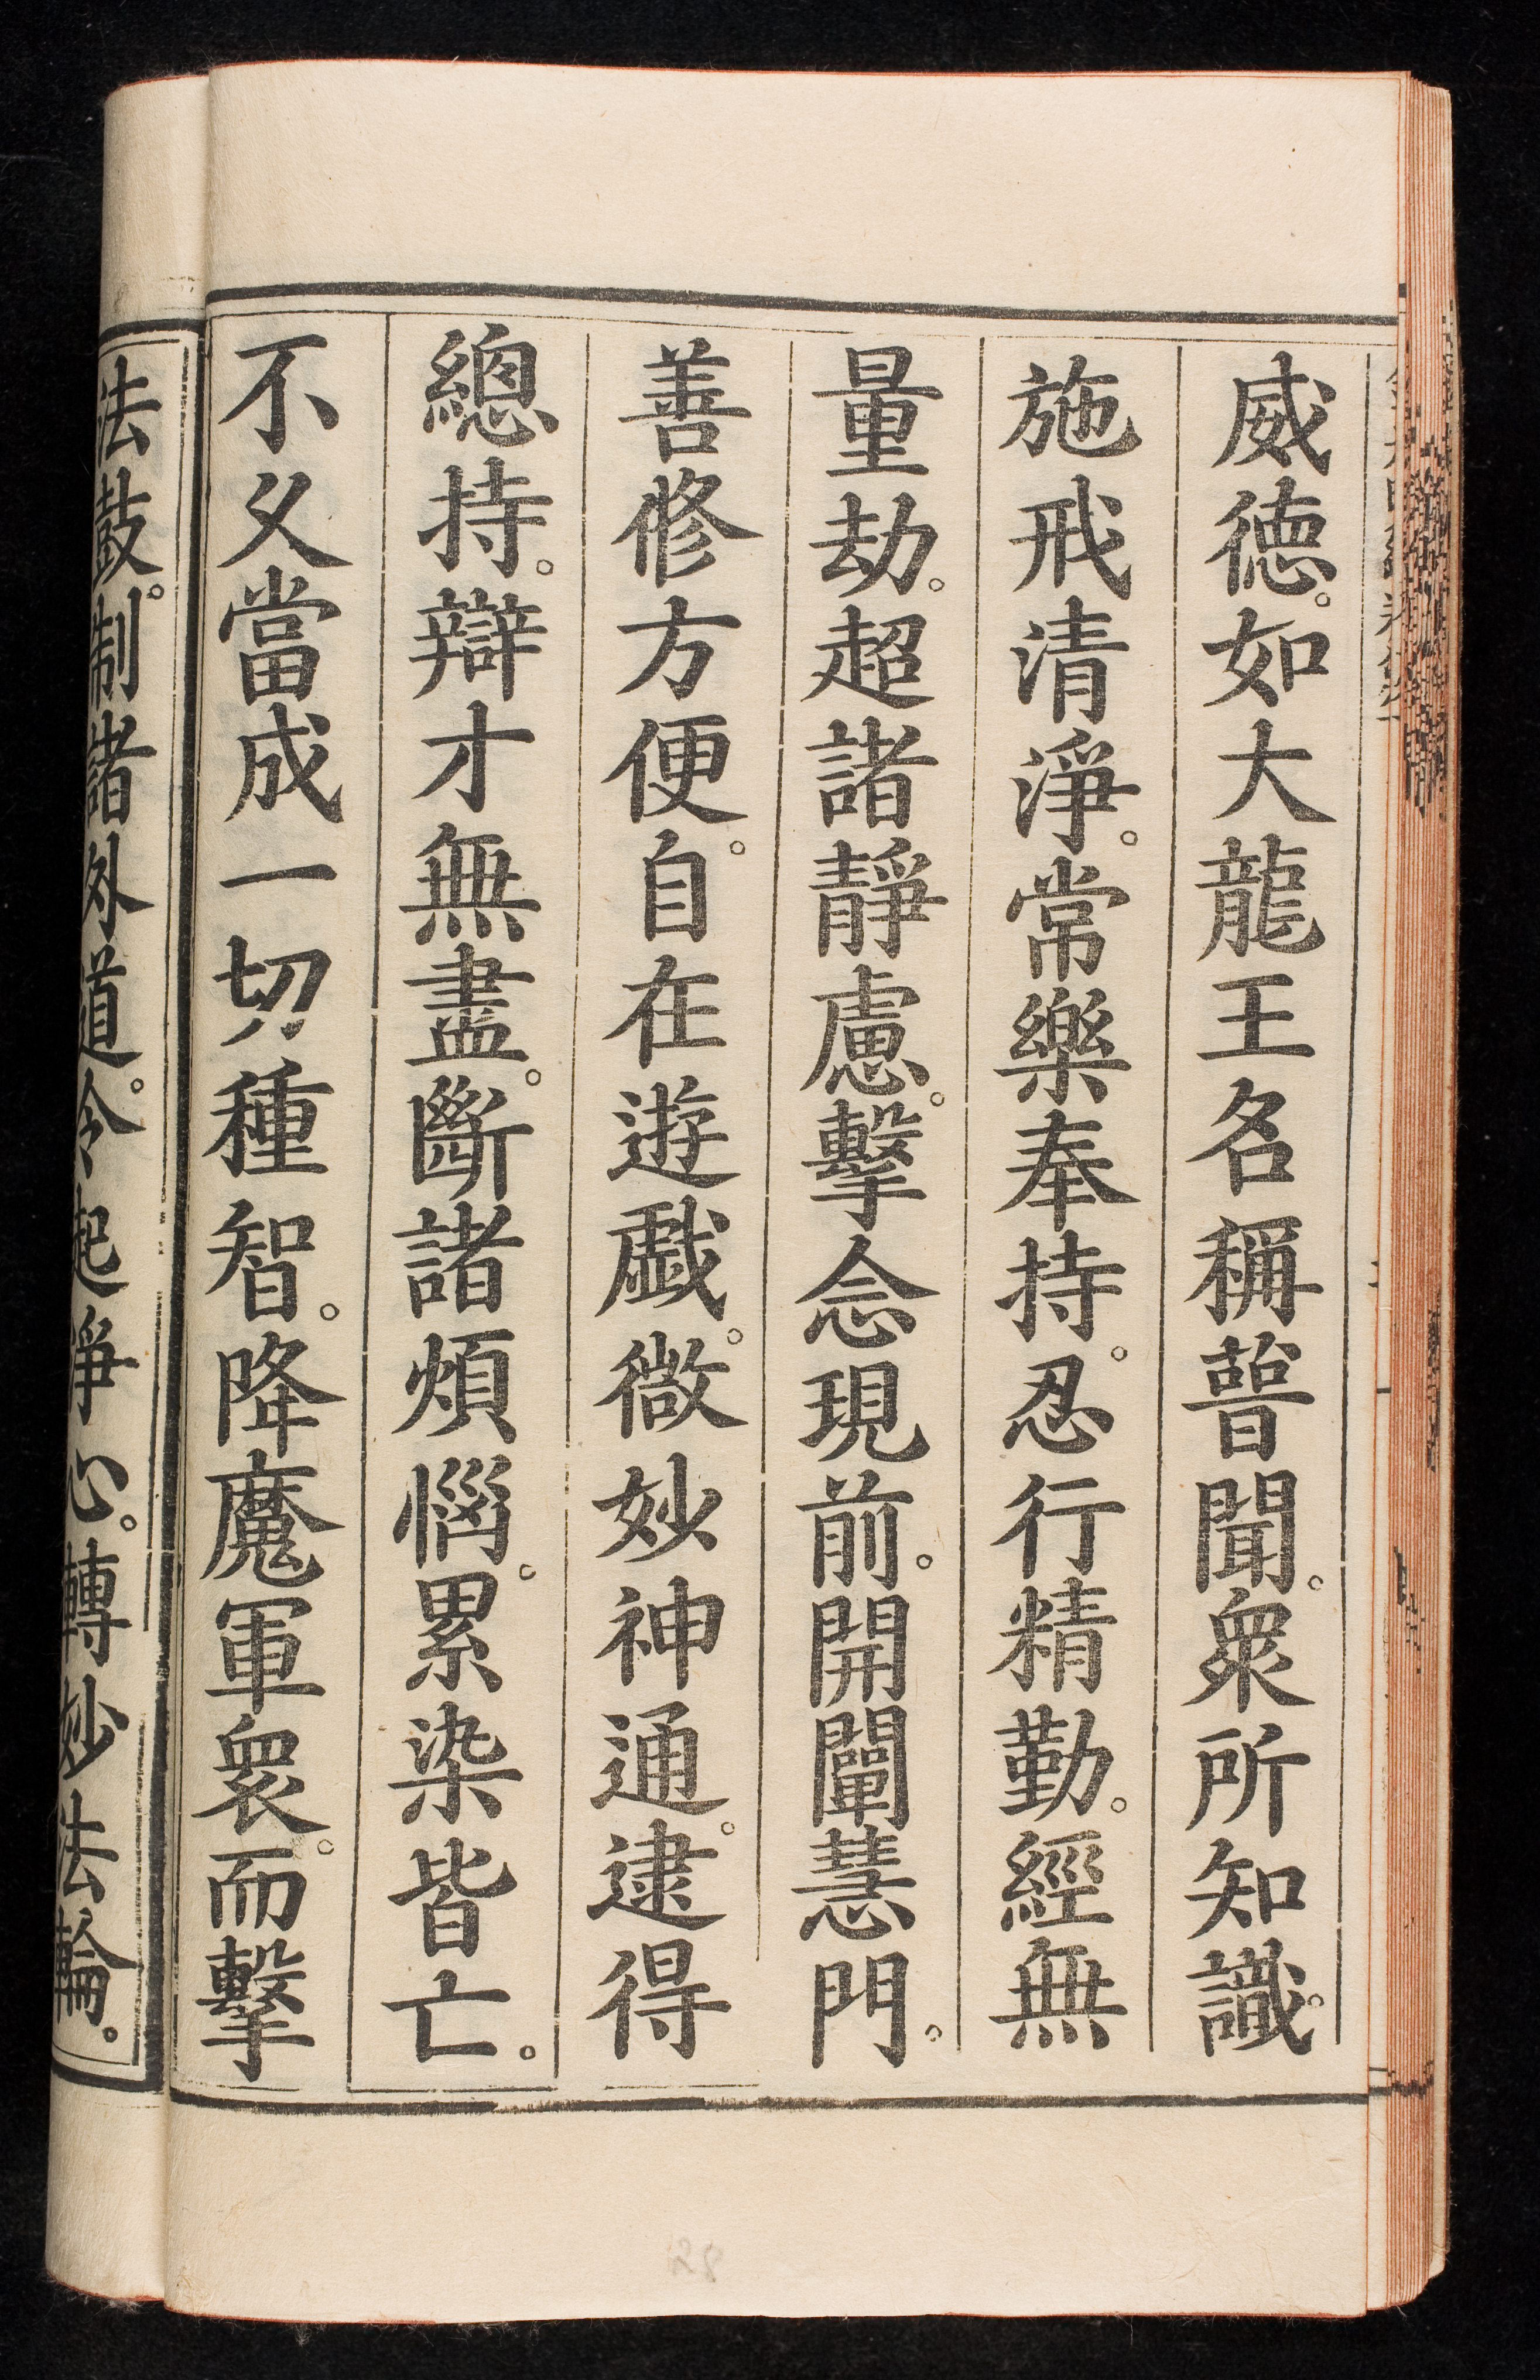 威德。如大龍王名稱普聞。眾所知識。
施戒清淨。常樂奉持。忍行精勤。經無
量劫。超諸靜慮。繫念現前。開闡慧門。
善修方便。自在遊戲。微妙神通。逮得
總持。辯才無盡。斷諸煩惱。累染皆亡。
不久當成一切種智。降魔軍眾。而擊
法鼓。制諸外道。令起淨心。轉妙法輪。